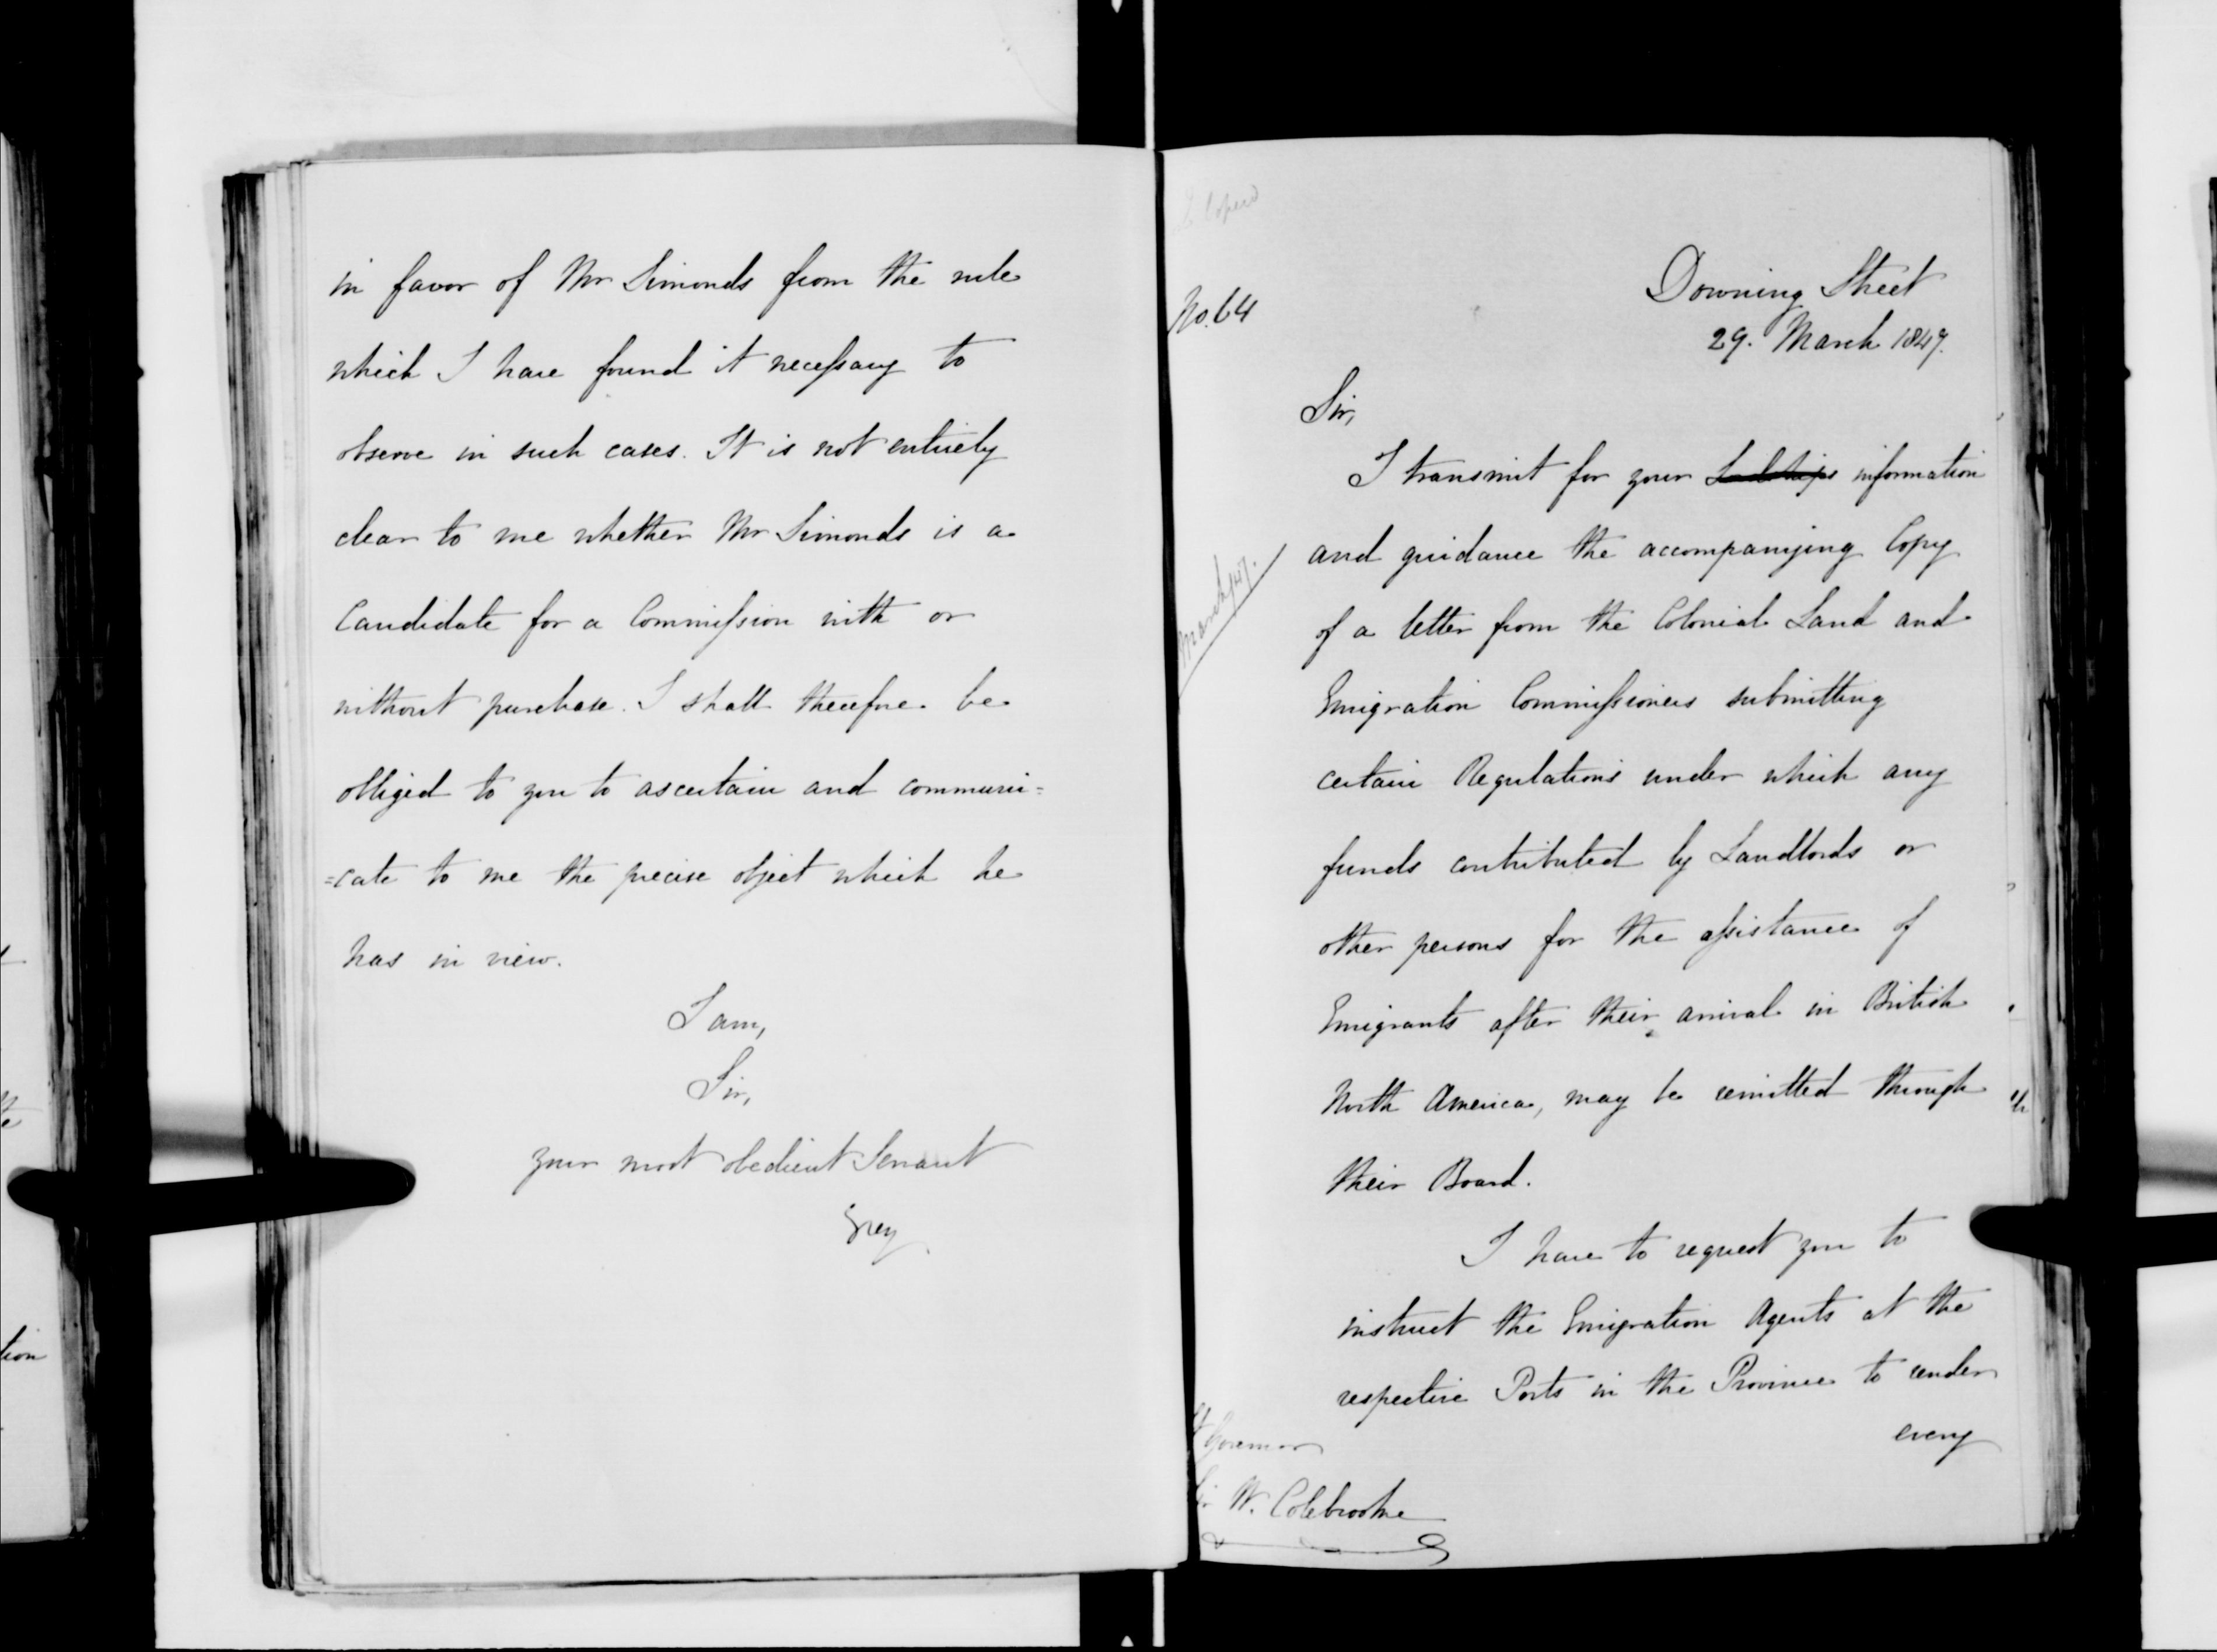 in favor of Mr Simonds from the rule
which I have found it necessary to
observe in such cases. It is not entirely
clear to me whether Mr Simonds is a
Candidate for a Commission with or
without purchase. I shall therefore be
obliged to you to ascertain and communi=
=cate to me the precise object which he
has in view.
I am,
Sir,
your most obedient Servant
Grey
No. 64
Downing Street
29. March 1847.
Sir,
I transmit for your Lordships information
and guidance the accompanying Copy
of a letter from the Colonial Land and
Emigration Commissioners submitting
certain Regulations under which any
funds contributed by Landlords or
other persons for the assistance of
Emigrants after their arrival in British
North America, may be remitted through
their Board.
I have to request you to
instruct the Emigration Agents at the
respective Ports in the Province to render
every
Governor
W. Colebrooke